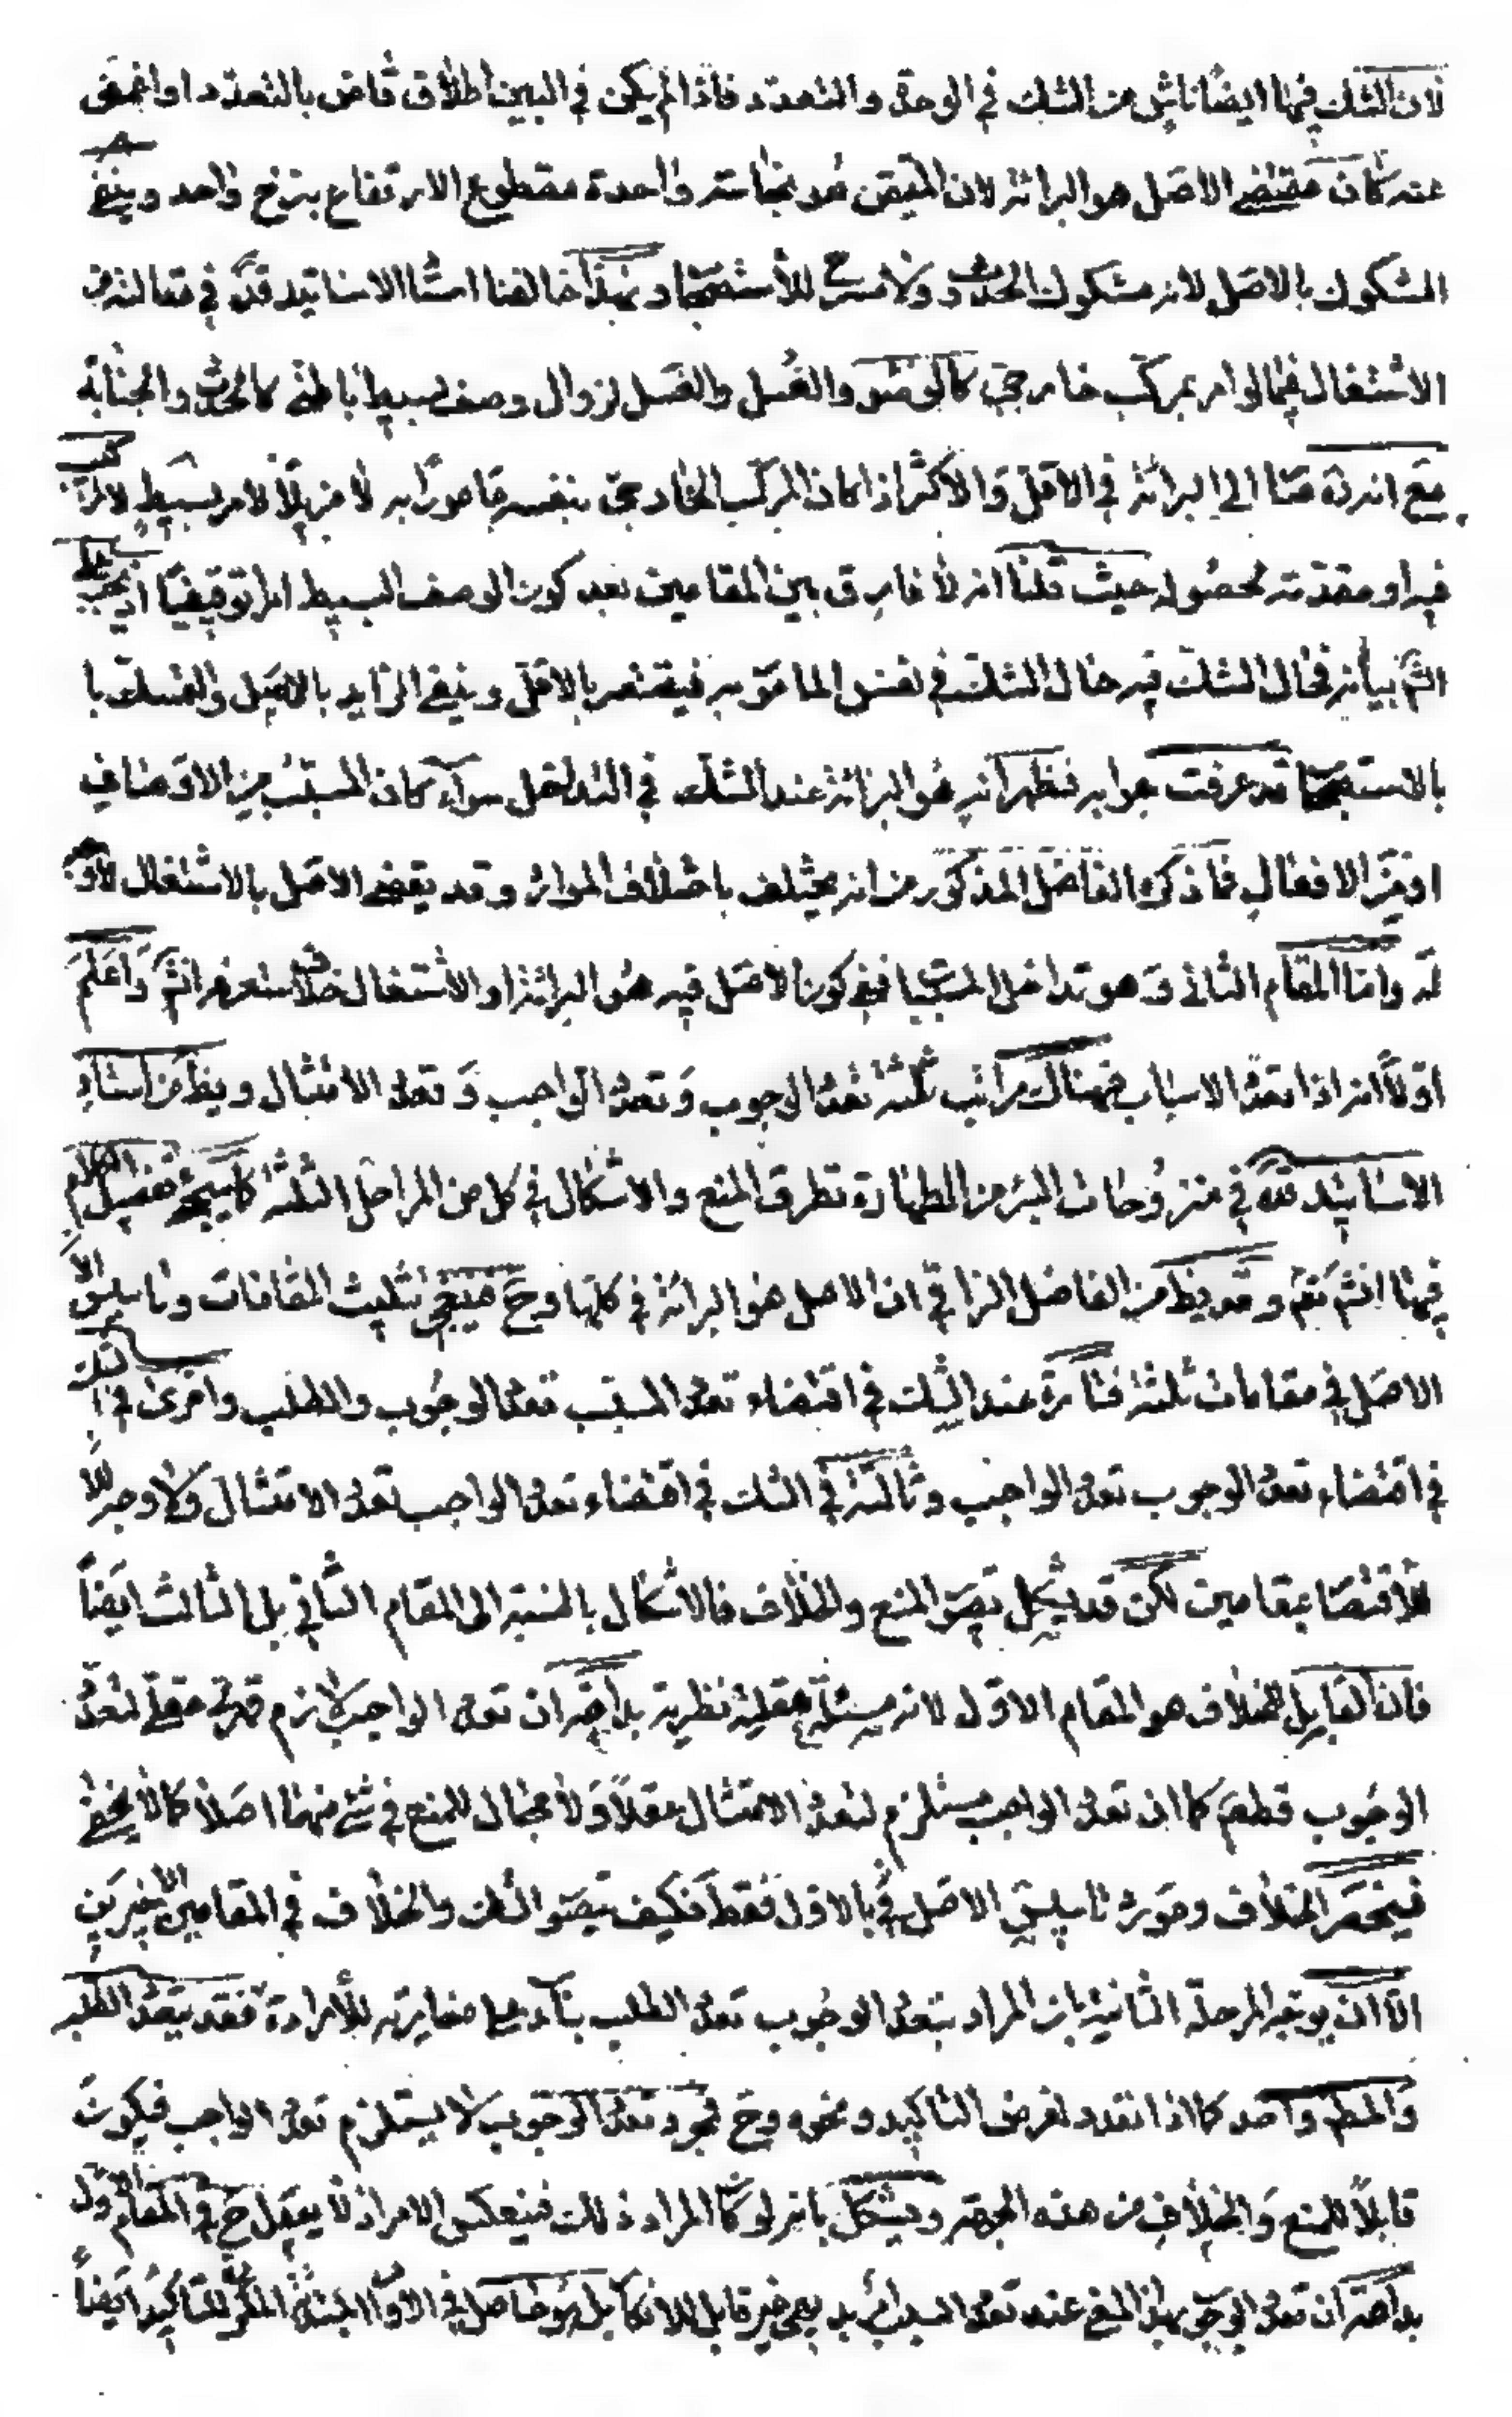 لان الشك فيها ايضا ناش من الشك في الوحدة والتعدد فاذا لم يكن في البين اطلاق قاض بالتعدد او اغمض
عنه كان مقتضى الاصل هو البرائة لان المتيقن هو نجاسة واحدة مقطوع الارتفاع بنزح واحد وينفى
المشكوك بالاصل لانه مشكوك الحدوث ولا مسرح للاستصحاب وبهذا خالفنا استا الاساتيد قده في مقالته من
الاشتغال فيما لو امر بمركب خارجي كالوضوء والغسل والغسل لزوال وصف بسيط باطني كالحدث والجنابة
مع انه ره منا الى البرائة في الاقل والاكثر اذا كان المركب الخارجي بنفسه مامورا به لا مزيلا لامر بسيط
فيه او مقدمة لحصوله حيث قلنا انه لا فارق بين المقامين بعد كون الوصف البسيط امرا توقيفيا اذ يجب على
الشم بيانه فحال الشك فيه حال الشك في نفس المامور به فيقتصر بالاقل وينفى الزايد بالاصل والتمسك با
بالاستصحاب قد عرفت جوابه فظهر انه هو البرائة عند الشك في التداخل سواء كان المسبب من الاوصاف
او من الافعال فما ذكره الفاضل المذكور من انه يختلف باختلاف الموارد وقد يقتضى الاصل بالاشتغال لا وجه
له واما المقام الثاني وهو تداخل المسببا ففي كون الاصل فيه هو البرائة او الاشتغال خلاف ستعرفه انش واعلم
اولا انه اذا تعدد الاسباب فهناك مراتب ثلثة تعدد الوجوب وتعدد الواجب وتعدد الامتثال ويظ من استاد
الاساتيد قده في منزوحات البئر من الطهارة تطرق المنع والاشكال في كل من المراحل الثلثة كما سيجئ تفصيل الكلام
فيها انش تعم وقد يظ من الفاضل النراقي ان الاصل هو البرائة في كلها وح فينبغي تثليث المقامات وتاسيس
الاصل في مقامات ثلثة فتارة عند الشك في اقتضاء تعدد المسبب تعدد الوجوب والطلب واخرى في الشك
في اقتضاء تعدد الوجوب تعدد الواجب وثالثة في الشك في اقتضاء تعدد الواجب تعدد الامتثال ولا وجه
للاقتصا بمقامين لكن قد يشكل تصور المنع والخلاف فالاشكال بالنسبة الى المقام الثاني بل الثالث ايضا
فان القابل للخلاف هو المقام الاول لانه مسئلة عقلية نظرية بداهة ان تعدد الواجب لازم قهري عقلي لتعدد
الوجوب قطعا كما ان تعدد الواجب مستلزم لتعدد الامتثال عقلا ولا مجال للمنع في شئ منهما اصلا كما لا يخفى
فينحصر الخلاف ومورد تاسيس الاصل في بالاول فقط فكيف يتصور الشك والخلاف في المقامين الاخيرين
الا ان يوجه المرحلة الثانية بان المراد بتعدد الوجوب تعدد الطلب بناء على مغايرته للارادة فقد يتعدد الطلب
والمط واحد كما اذا تعدد لغرض التاكيد ونحوه وح فمجرد تعدد الوجوب لا يستلزم تعدد الواجب فيكون
قابلا للمنع والخلاف من هذه الجهة ويشكل بانه لو كان المراد ذلك فينعكس الامر اذ لا يعقل ح في المقام الاول
بداهة ان تعدد الوجوب بهذا المعنى عند تعدد السبب بديهي غير قابل للانكار بل هو حاصل في الاوامر المبتدئة المكررة للتاكيد ايضا